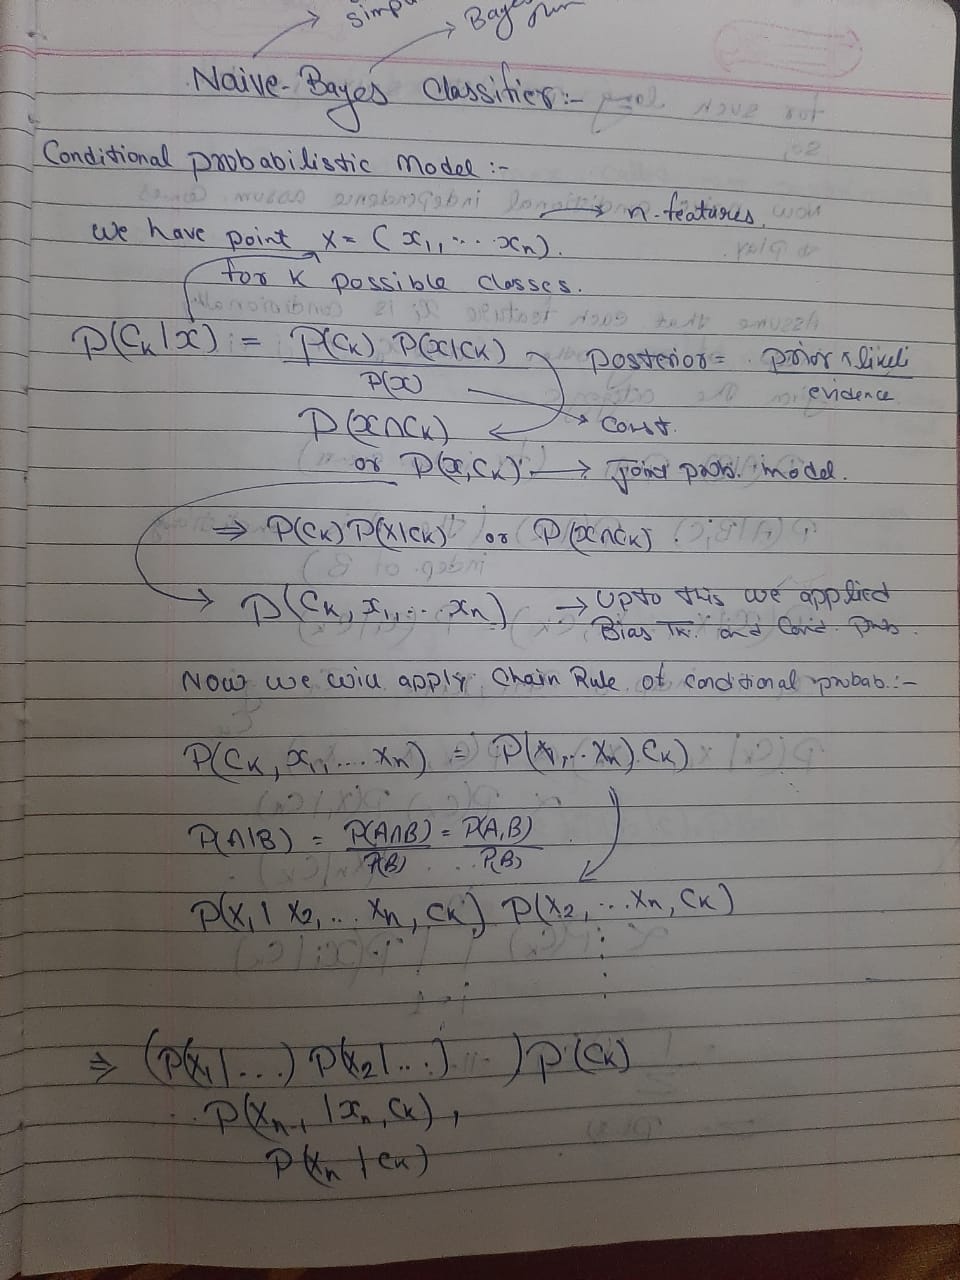 Naive-Bayes Classifier:-
Conditional probabilistic Model :-
→ n-features,
we have point x = (x1, ... xn).
for K possible classes.
P(Ck|x) = P(Ck) P(x|Ck) / P(x)
Posterior = prior x likeli / evidence
P(x∩Ck) → Const.
or P(x,Ck) → Joint prob. model.
⇒ P(Ck) P(x|Ck) or P(x∩Ck)
→ P(Ck, x1, ... xn) → Upto this we applied
Bias Th. and Cond. Prob.
Now we will apply Chain Rule of conditional probab.:-
P(Ck, x1, ... xn) = P(x1, ... xn, Ck)
P(A|B) = P(A∩B) / P(B) = P(A,B) / P(B)
P(x1 | x2, ... xn, Ck) P(x2, ... xn, Ck)
⇒ (P(x1|...) P(x2|...) ... ) P(Ck)
.. P(xn-1 | xn, Ck),
P(xn | Ck)